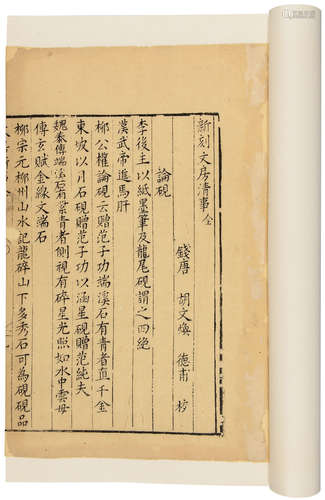 新刻文房清事全
錢唐 胡文煥 德甫 校
論硯
李後主以紙墨筆及龍尾硯謂之四絶
漢武帝進馬肝
柳公權論硯云贈范子功端溪石有青者直千金
東坡以月石硯贈范子功以涵星硯贈范純夫
魏泰傳端
梁青者側視有碎星光照如水中雲母
傅玄賦金線文端石
柳宗元柳州山水記龍碎山下多秀石可為硯硯品